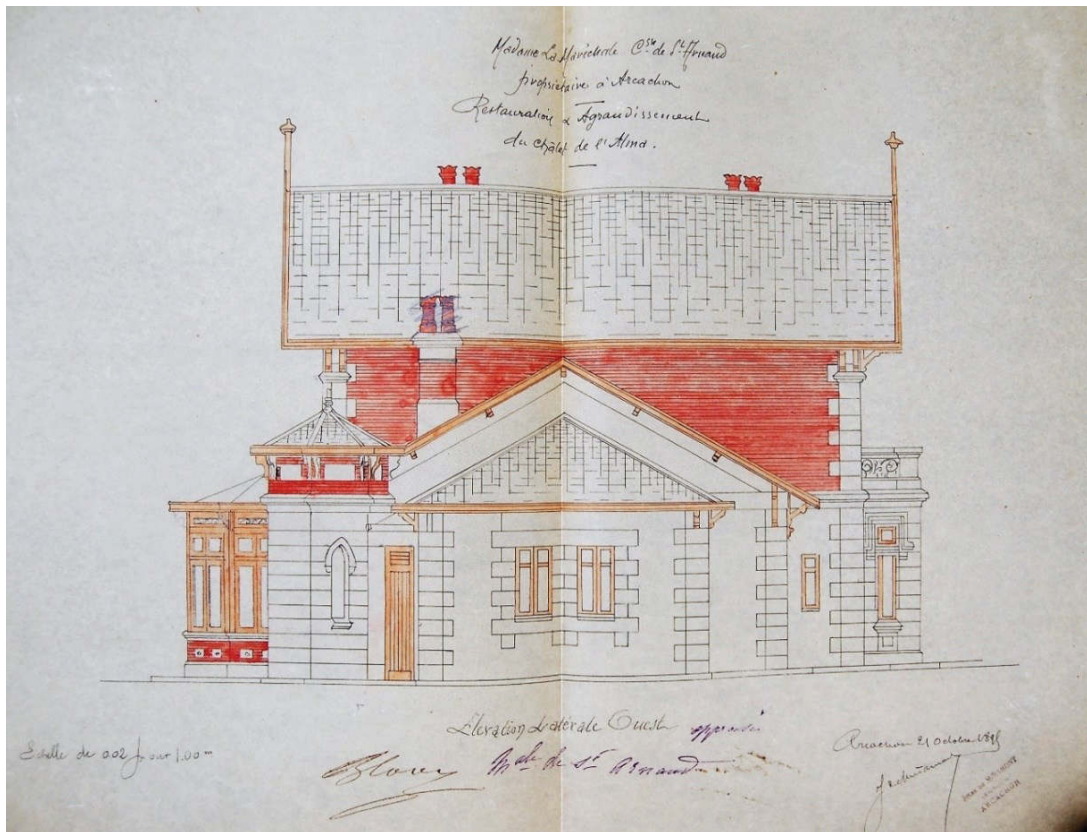 Madame La Maréchale Csse de St Arnaud
propriétaire à Arcachon
Restauration & Agrandissement
du châlet de l'Alma.
Elévation Latérale Ouest
approuvé
Echelle de 0.02 pour 1.00 m
Male de St Arnaud
Arcachon 21 Octobre
ARCACHON